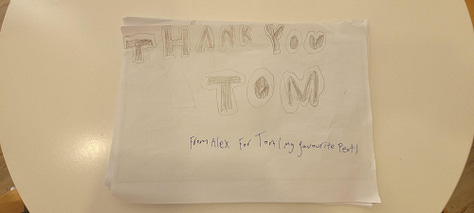 THANK YOU
TOM
From Alex For Tom (my favourite